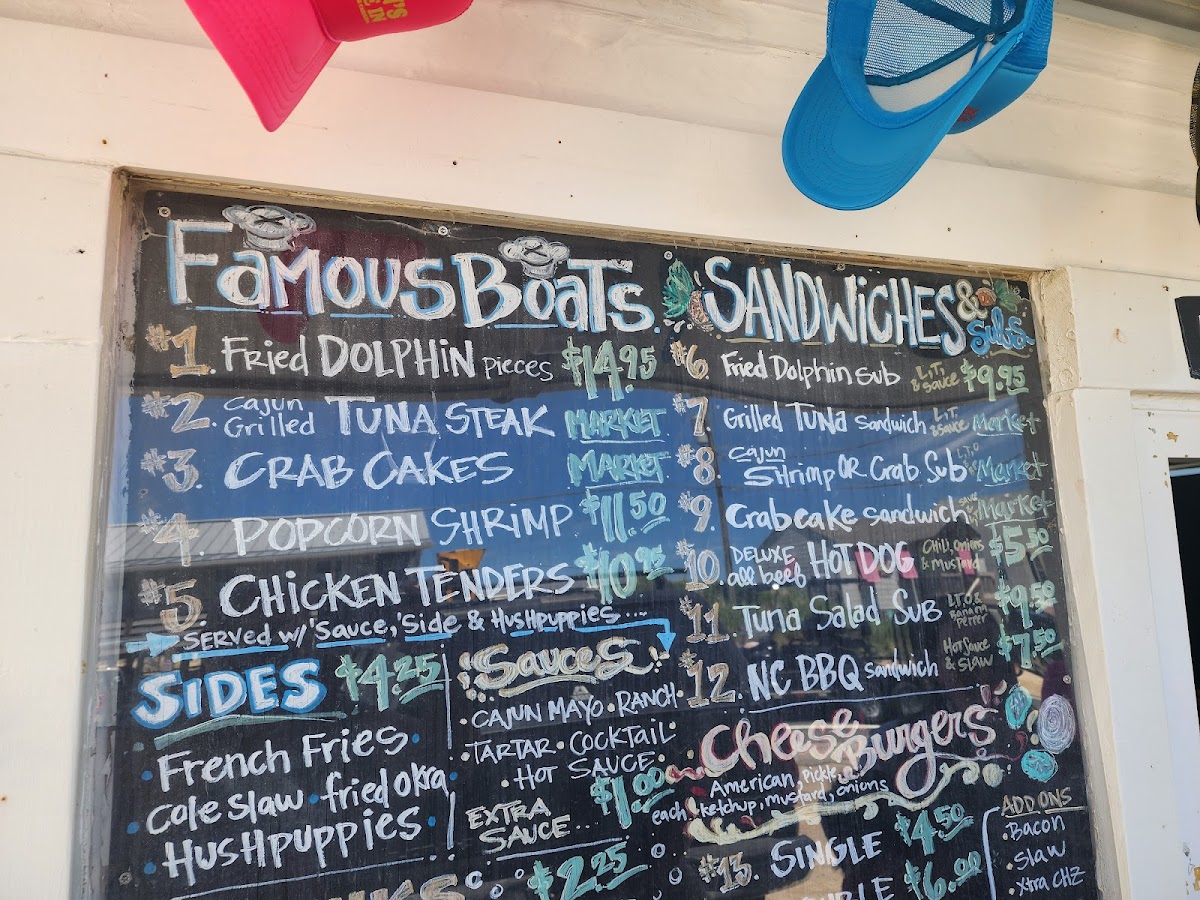 FAMOUS BOATS
#1. Fried DOLPHIN pieces $14.95
#2. Cajun Grilled TUNA STEAK MARKET
#3. CRAB CAKES MARKET
#4. POPCORN SHRIMP $11.50
#5. CHICKEN TENDERS $10.95
SERVED w/ 'Sauce,' Side & HUSHPUPPIES...
SIDES $4.25
French Fries
Cole Slaw • fried okra
HUSHPUPPIES
Sauces
• CAJUN MAYO • RANCH •
• TARTAR • COCKTAIL •
• HOT SAUCE
EXTRA SAUCE... $1.00 each
$2.25
SANDWICHES & Subs
#6 Fried Dolphin sub L,T, & sauce $9.95
#7. Grilled TUNA sandwich L,T, & sauce Market
#8. Cajun Shrimp OR Crab Sub L,T,O Market
#9. Crabcake sandwich Market
#10. DELUXE all beef HOT DOG Chili, onions & mustard $5.50
#11. Tuna Salad SUB L,T,O & BANANA PEPPER $9.50
#12. NC BBQ sandwich Hot Sauce & Slaw $7.50
Cheese Burgers
American, pickle,
ketchup, mustard, onions
#13. SINGLE $4.50
$6.00
ADD ONS
• Bacon
• Slaw
• Xtra CHZ